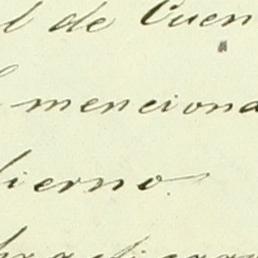 l de Cuen
menciona
bierno.